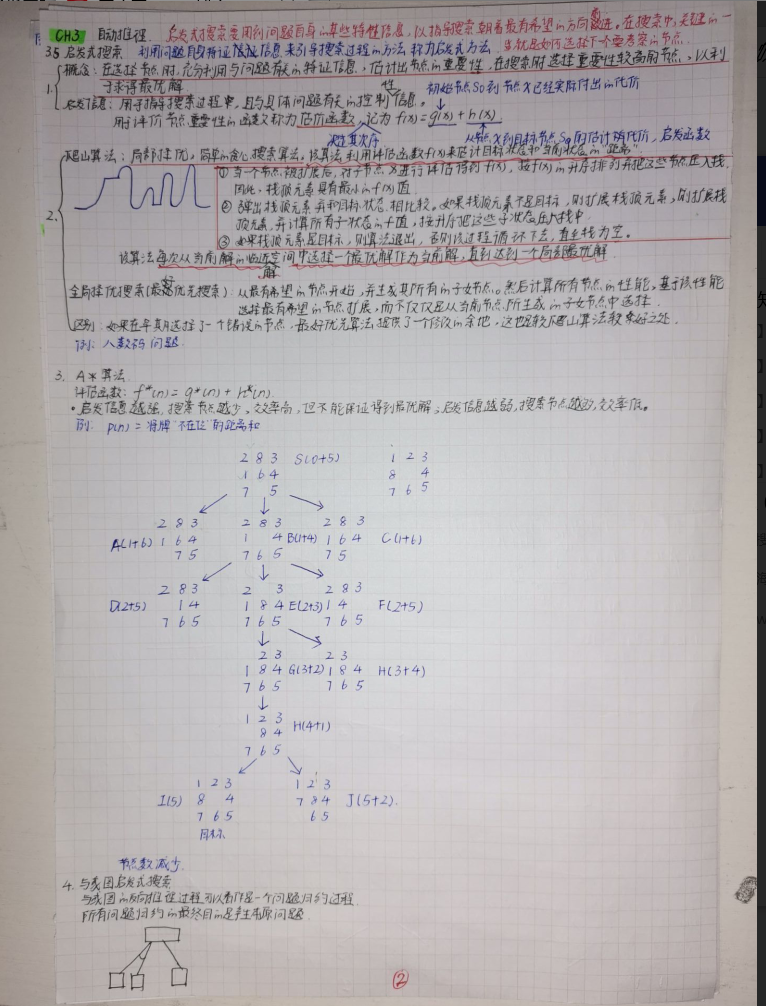 CH3 自动推理 启发式搜索要用到问题自身的某些特性信息，以指导搜索朝着最有希望的方向前进。在搜索中，关键的一
步就是如何选择下一个要考察的节点.
3.5 启发式搜索. 利用问题自身特征信息来引导搜索过程的方法称为启发式方法.
1. 概念：在选择节点时，充分利用与问题有关的特征信息，估计出节点的重要性，在搜索时选择重要性较高的节点，以利
于求得最优解
启发信息：用于指导搜索过程中，且与具体问题有关的控制性信息。
初始节点S0到节点X已经实际付出的代价
用于评价节点重要性的函数称为估价函数，记为 f(x)=g(x)+h(x)
决定其次序
从节点X到目标节点Sg的估计的代价，启发函数
2. 爬山算法：局部择优，简单的贪心搜索算法。该算法利用评估函数f(x)来估计目标状态和当前状态的"距离"
① 当一个节点被扩展后，对子节点X进行评估得到f(x)，按f(x)的升序排列并把这些节点压入栈.
因此，栈顶元素具有最小的f(x)值.
② 弹出栈顶元素并和目标状态相比较。如果栈顶元素不是目标，则扩展栈顶元素，
并计算所有子状态的f值，按升序把这些子状态压入栈中.
③ 如果栈顶元素是目标，则算法退出，否则该过程循环下去，直至栈为空。
该算法每次从当前解的临近空间中选择一个最优解作为当前解，直到达到一个局部最优解.
全局择优搜索(最好优先搜索)：从最有希望的节点开始，并生成其所有的子女节点。然后计算所有节点的性能，基于该性能
选择最有希望的节点扩展，而不仅仅是从当前节点所生成的子女节点中选择.
区别：如果在早期选择了一个错误的节点，最好优先算法提供了一个修改的余地，这也是较爬山算法较好之处.
例：八数码问题.
3. A*算法.
评估函数：f*(n)=g*(n)+h*(n).
• 启发信息越强，搜索节点越少，效率高，但不能保证得到最优解；启发信息越弱，搜索节点越多，效率低。
例：p(n)=将牌"不在位"的距离和
2 8 3 S(0+5) 1 2 3
1 6 4 8 4
7 5 7 6 5
2 8 3 2 8 3 2 8 3
A(1+6) 1 6 4 1 4 B(1+4) 1 6 4 C(1+6)
7 5 7 6 5 7 5
2 8 3 2 3 2 8 3
D(2+5) 1 4 1 8 4 E(2+3) 1 4 F(2+5)
7 6 5 7 6 5 7 6 5
2 3 2 3
1 8 4 G(3+2) 1 8 4 H(3+4)
7 6 5 7 6 5
1 2 3
8 4 H(4+1)
7 6 5
1 2 3 1 2 3
I(5) 8 4 7 8 4 J(5+2).
7 6 5 6 5
目标
节点数减少.
4. 与或图启发式搜索
与或图的反向推理过程可以看作是一个问题归约过程.
所有问题归约的最终目的是产生本原问题.
②